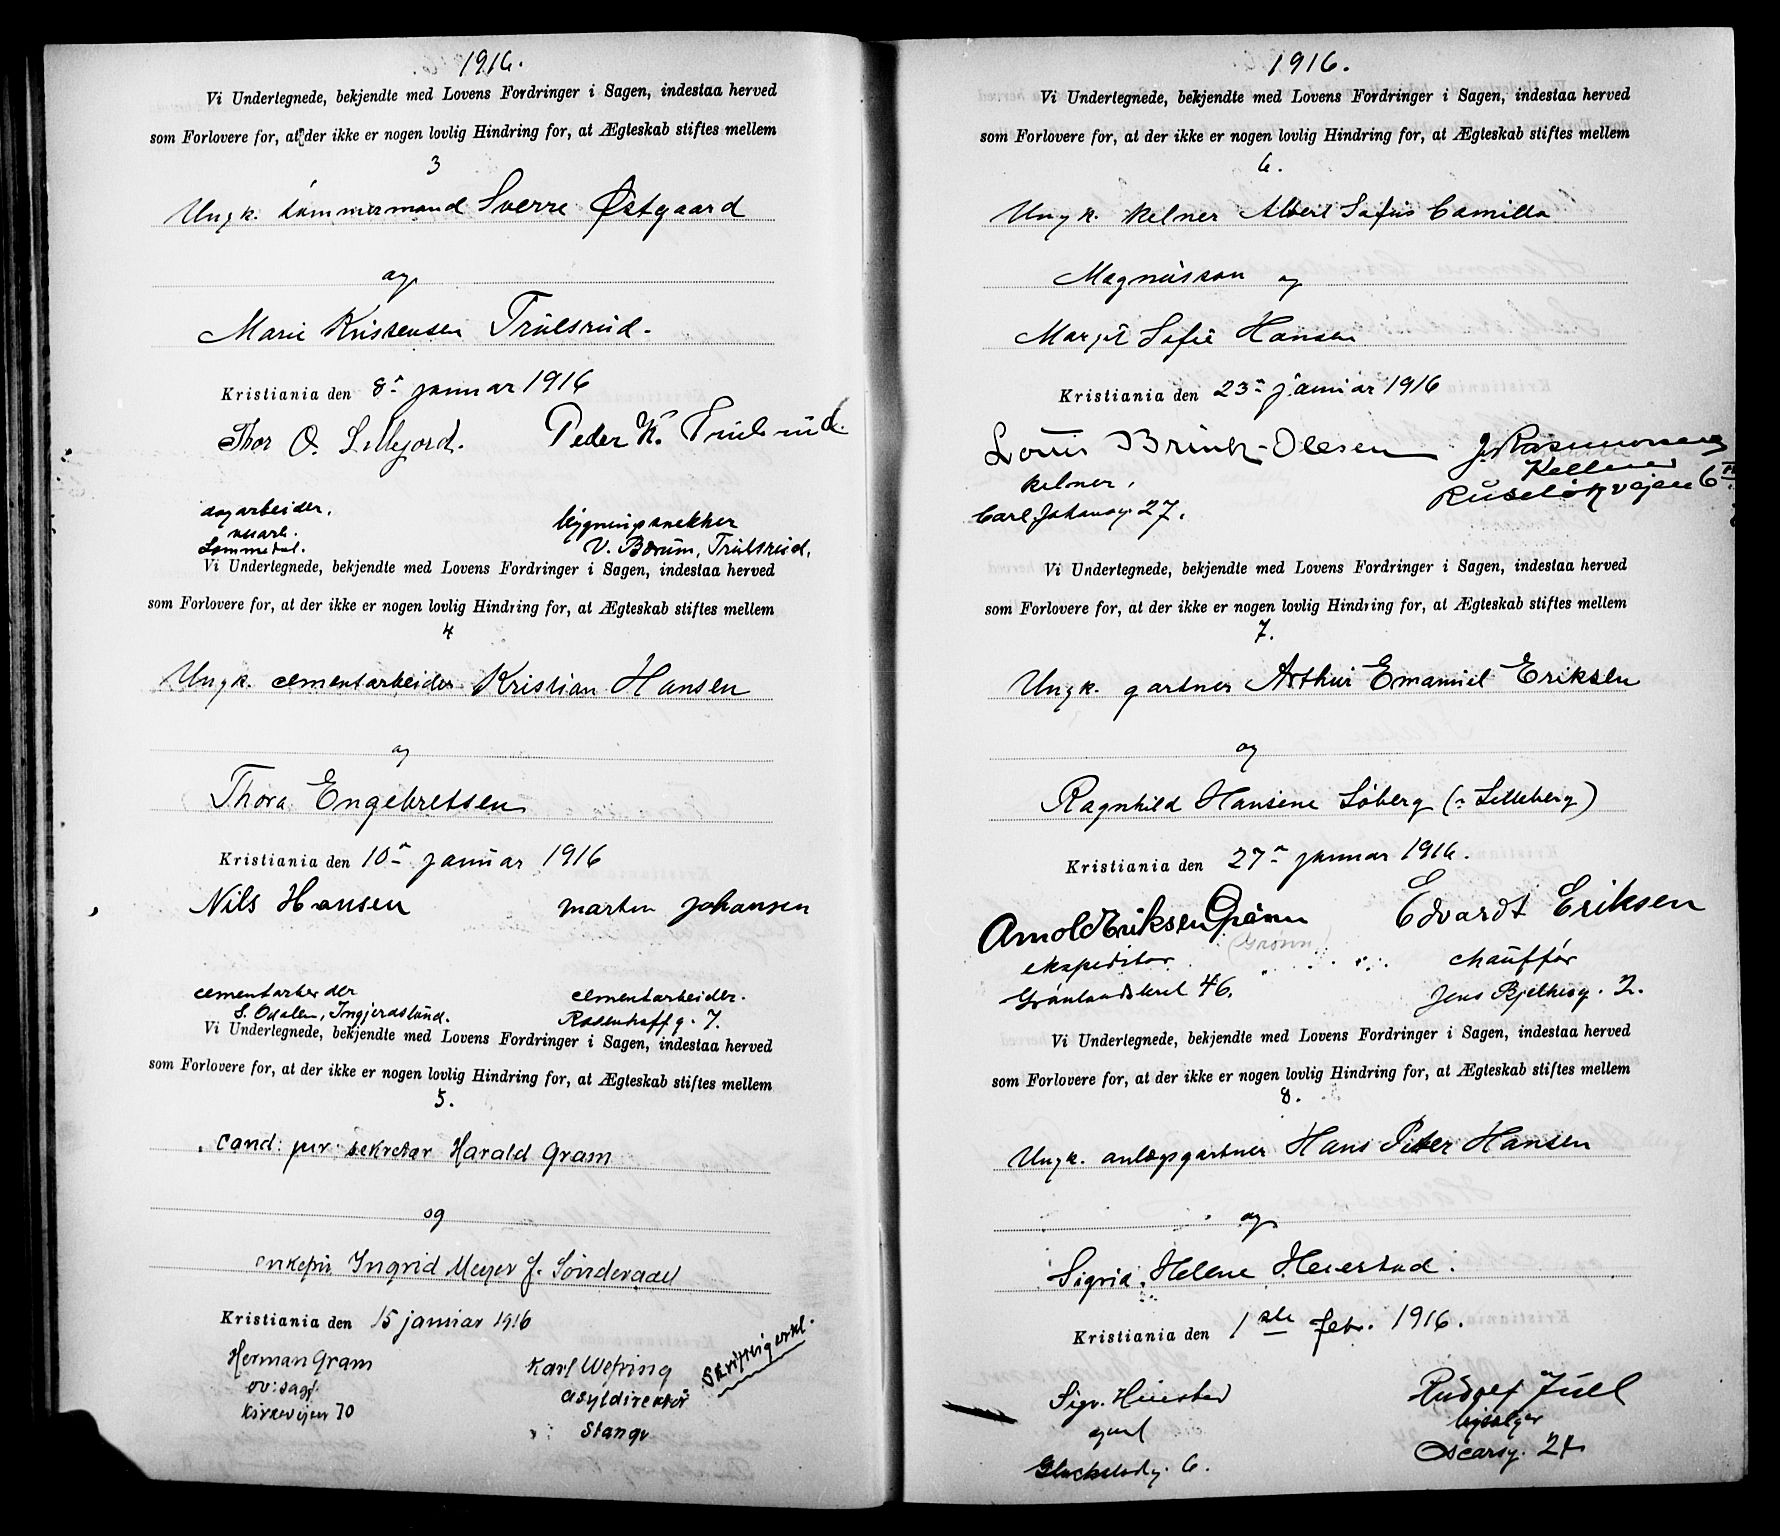 1916.
Vi Undertegnede, bekjendte med Lovens Fordringer i Sagen, indestaa herved
som Forlovere for, at der ikke er nogen lovlig Hindring for, at Ægteskab stiftes mellem
3
Ungk. tømmermand Sverre Østgaard
og
Marie Kristensen Trulsrud.
Kristiania den 8de januar 1916
Thor O. Lillejord. Peder K. Trulsrud.
dagarbeider. bygningssnekker
Lommedal. V. Bærum, Trulsrud.
Vi Undertegnede, bekjendte med Lovens Fordringer i Sagen, indestaa herved
som Forlovere for, at der ikke er nogen lovlig Hindring for, at Ægteskab stiftes mellem
4
Ungk. cementarbeider Kristian Hansen
og
Thora Engebretsen
Kristiania den 10de januar 1916
Nils Hansen Marten Johansen
cementarbeider cementarbeider.
S. Odalen, Ingjerdslund. Rosenhoffg. 7.
Vi Undertegnede, bekjendte med Lovens Fordringer i Sagen, indestaa herved
som Forlovere for, at der ikke er nogen lovlig Hindring for, at Ægteskab stiftes mellem
5.
cand. jur. sekretær Harald Gram
og
enkefru Ingrid Meyer f. Sønderaal
Kristiania den 15 januar 1916
Herman Gram Karl Wefring Skriftlig erkl.
ov:sagf. asyldirektør
Kirkeveien 70 Stange
1916.
Vi Undertegnede, bekjendte med Lovens Fordringer i Sagen, indestaa herved
som Forlovere for, at der ikke er nogen lovlig Hindring for, at Ægteskab stiftes mellem
6.
Ungk. kelner Albert Sofus Camillo
Magnusson og
Margit Sofie Hansen
Kristiania den 23de januar 1916
Louis Brink-Olesen J. Rasmussen
kelner. Kellner
Carl Johansg. 27. Ruseløkveien 6
Vi Undertegnede, bekjendte med Lovens Fordringer i Sagen, indestaa herved
som Forlovere for, at der ikke er nogen lovlig Hindring for, at Ægteskab stiftes mellem
7.
Ungk. gartner Arthur Emanuel Eriksen
og
Ragnhild Hansine Søberg (: Lilleberg)
Kristiania den 27de januar 1916.
Arnold Eriksen Grønn Edvardt Eriksen
(Grønn)
ekspeditør chauffør
Grønlandsleret 46. Jens Bjelkesg. 2.
Vi Undertegnede, bekjendte med Lovens Fordringer i Sagen, indestaa herved
som Forlovere for, at der ikke er nogen lovlig Hindring for, at Ægteskab stiftes mellem
8.
Ungk. anlægsgartner Hans Peter Hansen
og
Sigrid Helene Heiestad.
Kristiania den 1ste febr. 1916.
Sigv. Heiestad Rudolf Juell
Oscarsg. 24
6.